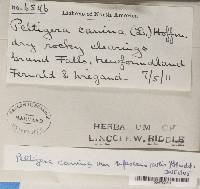 no. 6546
Lichens of North America.
Peltigera canina (L.) Hoffm.
dry rocky clearings
Grand Falls, Newfoundland
Fernald & Wiegand. 7/5/11
HARVARD
HERBARIUM OF
LINCOLN W. RIDDLE
Peltigera canina var. rufescens